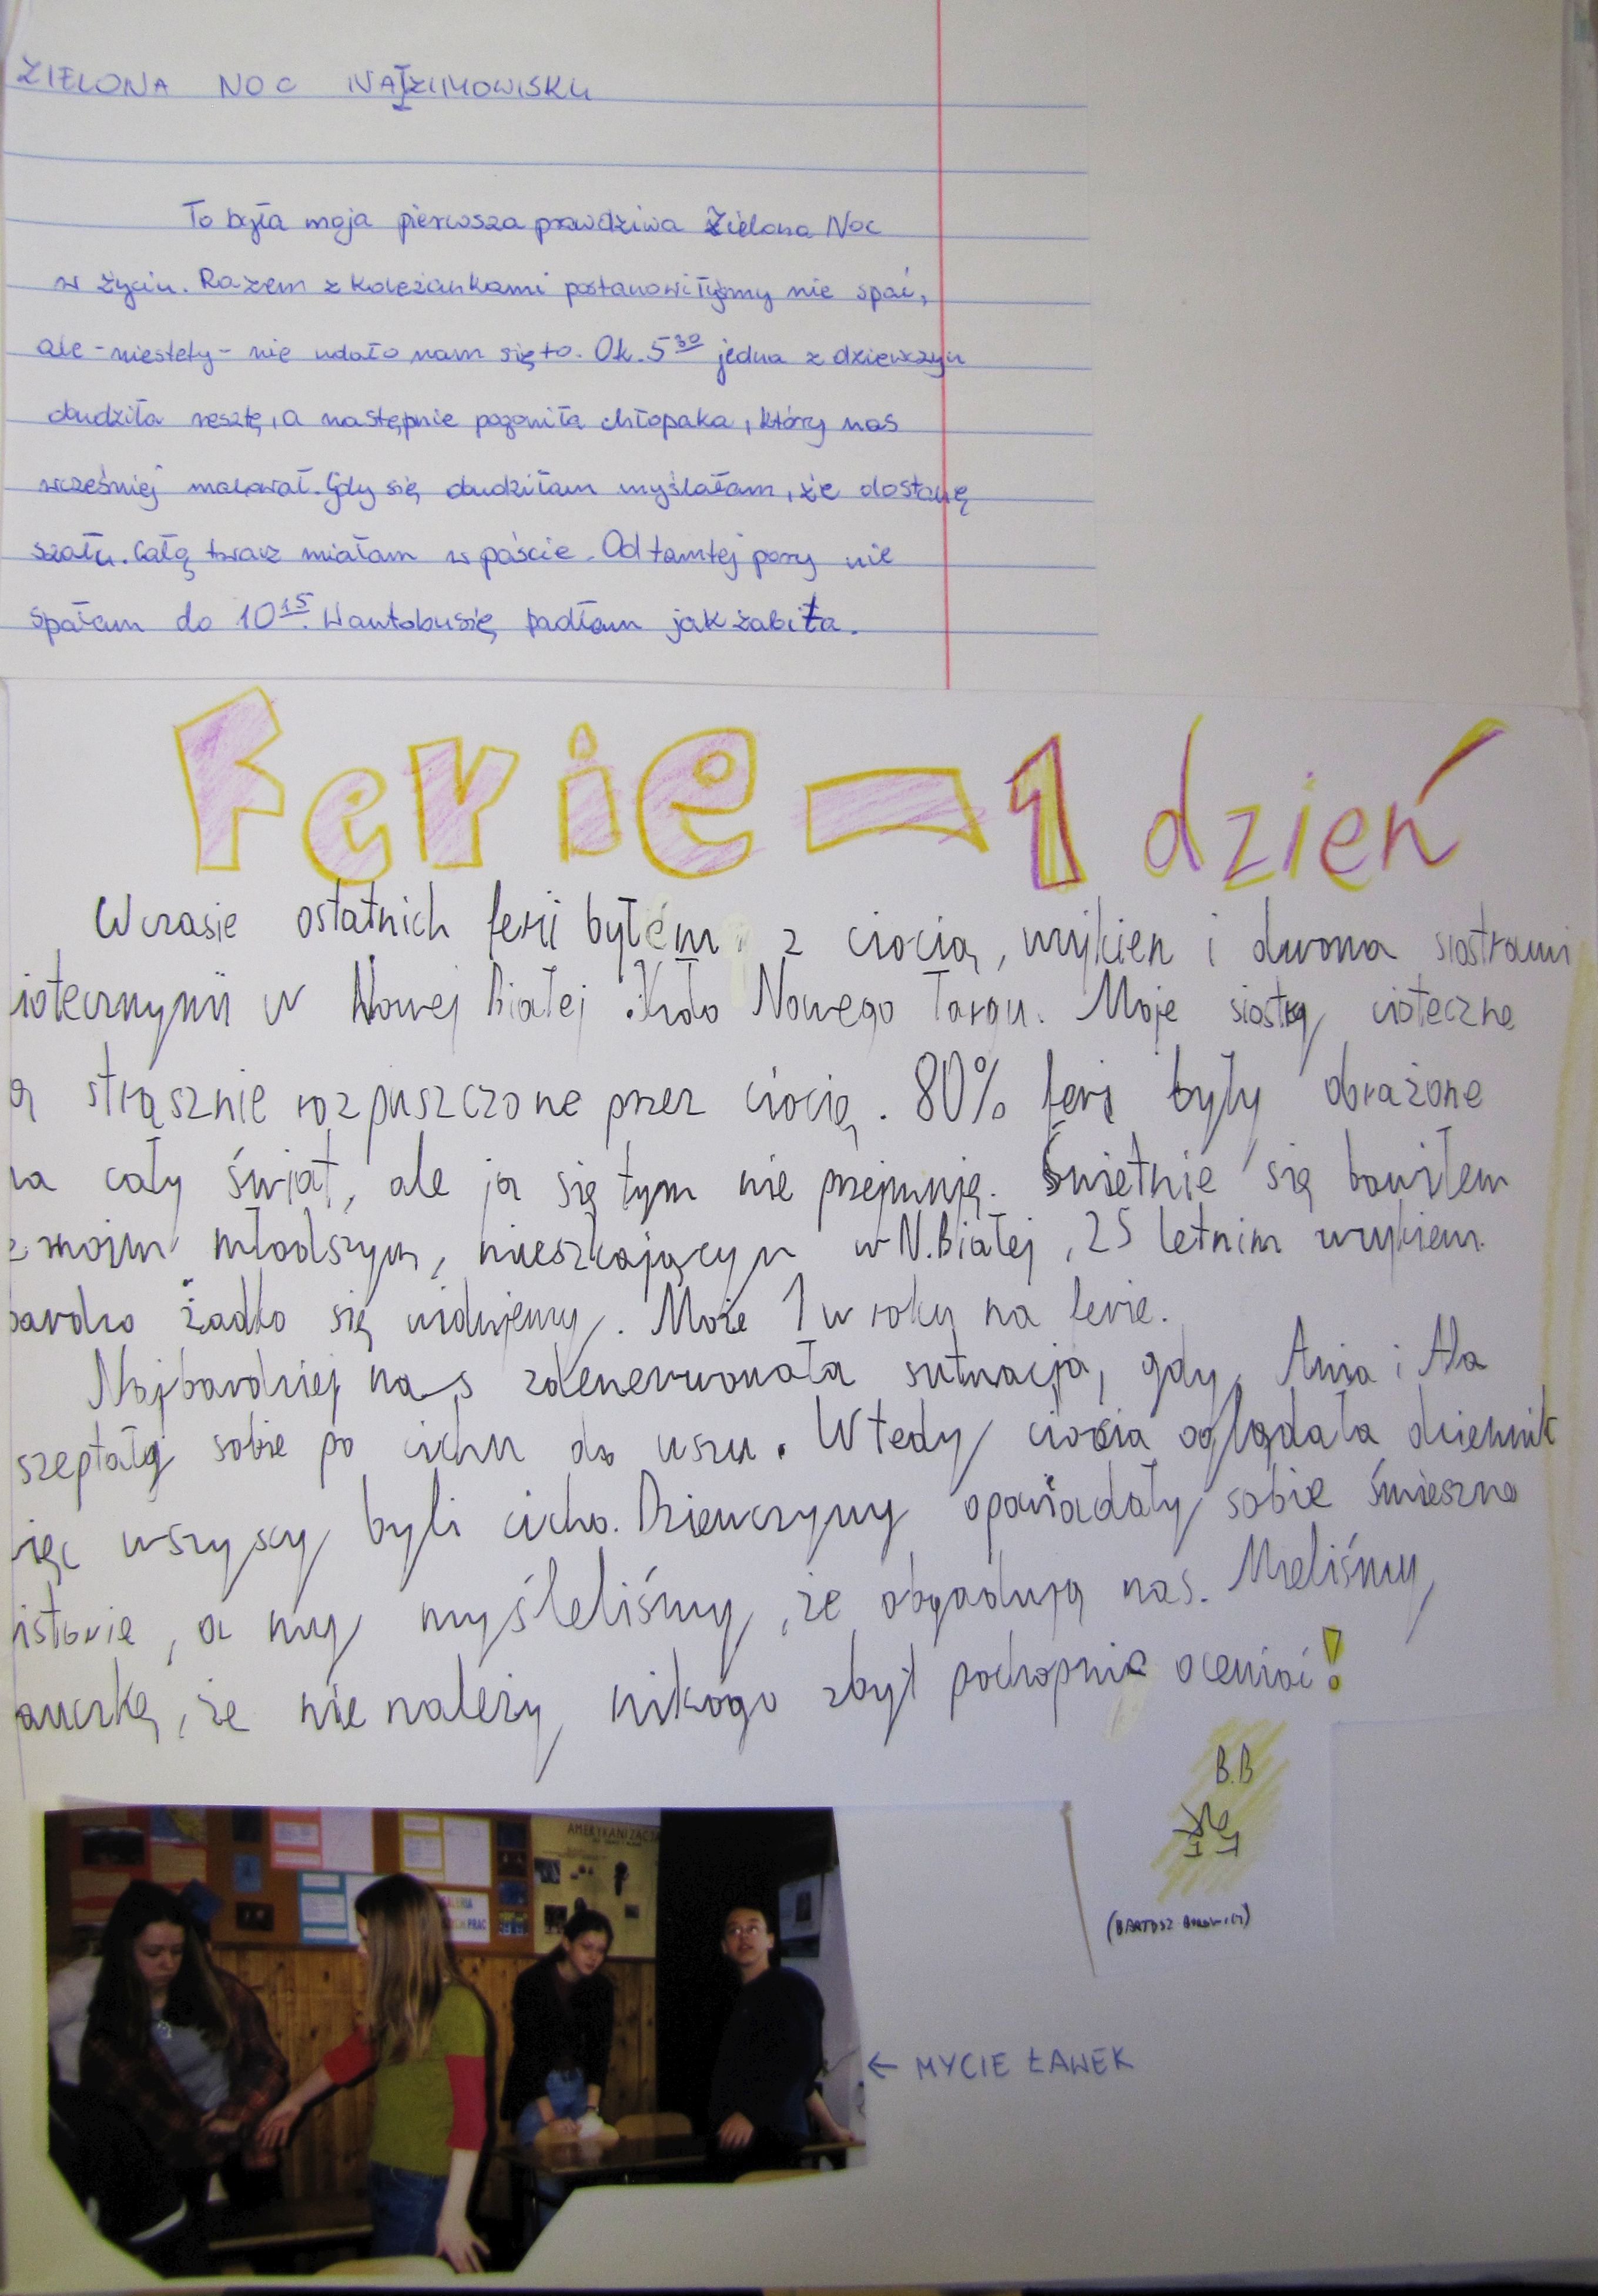 ZIELONA NOC NA ZIMOWISKU
To była moja pierwsza prawdziwa Zielona Noc
w życiu. Razem z koleżankami postanowiłyśmy nie spać,
ale - niestety - nie udało nam się to. Ok. 5³⁰ jedna z dziewczyn
obudziła resztę, a następnie pogoniła chłopaka, który nas
wcześniej malował. Gdy się obudziłam myślałam, że dostanę
szału. Całą twarz miałam w paście. Od tamtej pory nie
spałam do 10¹⁵. W autobusie padłam jak zabita.
Ferie - 1 dzień
W czasie ostatnich ferii byłem z ciocią, wujkiem i dwoma siostrami
iotecznymi w Nowej Białej koło Nowego Targu. Moje siostry cioteczne
ą strasznie rozpuszczone przez ciocię. 80% ferii były obrażone
na cały świat, ale ja się tym nie przejmuję. Świetnie się bawiłem
z moim młodszym, mieszkającym w N.Białej, 25 letnim wujkiem.
bardzo żadko się widujemy. Może 1 w roku na ferie.
Najbardziej nas zdenerwowała sutuacja, gdy Ania i Ala
szeptały sobie po cichu do uszu. Wtedy ciocia oglądała dziennik
ięc wszyscy byli cicho. Dziewczyny opowiadały sobie śmieszne
istorie, a my myśleliśmy, że obgadują nas. Mieliśmy
auczkę, że nie należy nikogo zbyt pochopnie oceniać!
B.B
(BARTOSZ
AMERYKANIZACJA
GALERIA
PRAC
← MYCIE ŁAWEK